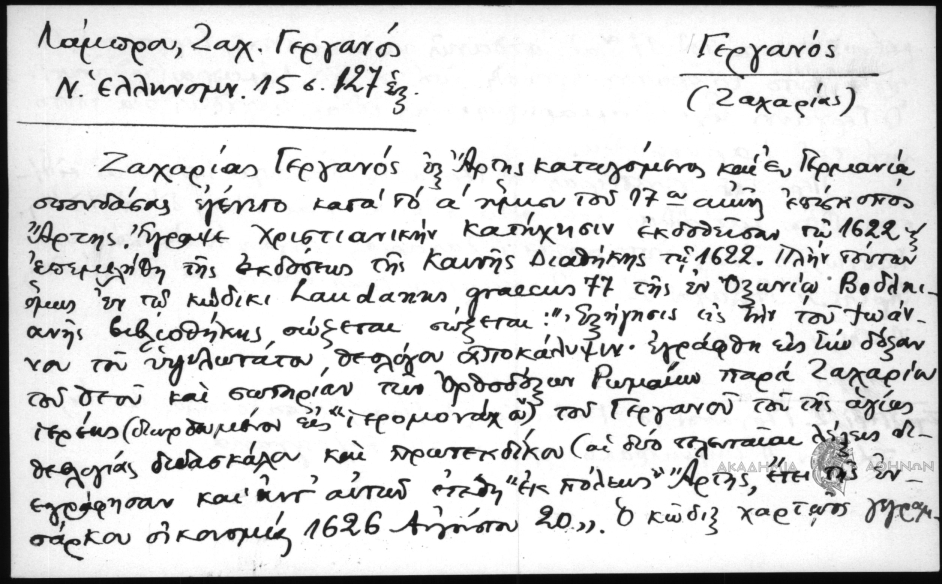 Λάμπρου, Ζαχ. Γεργανός
Ν. Ἑλληνομν. 15 σ. 127 ἑξ.
Γεργανός
(Ζαχαρίας)
Ζαχαρίας Γεργανός ἐξ Ἄρτης καταγόμενος καὶ ἐν Γερμανίᾳ
σπουδάσας ἐγένετο κατὰ τὸ α' ἥμισυ τοῦ 17ου αἰῶνος ἐπίσκοπος
Ἄρτης. Ἔγραψε Χριστιανικὴν Κατήχησιν ἐκδοθεῖσαν τῷ 1622 &
ἐπεμελήθη τῆς ἐκδόσεως τῆς Καινῆς Διαθήκης τῷ 1622. Πλὴν τούτων
ὅμως ἐν τῷ κώδικι Laudanus graecus 77 τῆς ἐν Ὀξωνίῳ Βοδληι-
ανῆς βιβλιοθήκης σώζεται σώζεται: "Ἐξήγησις εἰς τὴν τοῦ Ἰωάν-
νου τοῦ ὑψηλωτάτου θεολόγου ἀποκάλυψιν· ἐγράφθη εἰς τὴν δόξαν
τοῦ θεοῦ καὶ σωτηρίαν τῶν Ὀρθοδόξων Ῥωμαίων παρὰ Ζαχαρίου
ἱερέως (διωρθωμένον εἰς "ἱερομονάχου") τοῦ Γεργανοῦ τοῦ τῆς ἁγίας
θεολογίας διδασκάλου καὶ πρωτεκδίκου (αἱ δύο τελευταῖαι λέξεις δι-
εγράφησαν καὶ ἀντ' αὐτῶν ἐτέθη "ἐκ πόλεως" Ἄρτης, ἔτει τῆς ἐν-
σάρκου οἰκονομίας 1626 Αὐγούστου 20». Ὁ κῶδιξ χαρτῷος γεγραμ-
ΑΚΑΔΗΜΙΑ ΑΘΗΝΩΝ